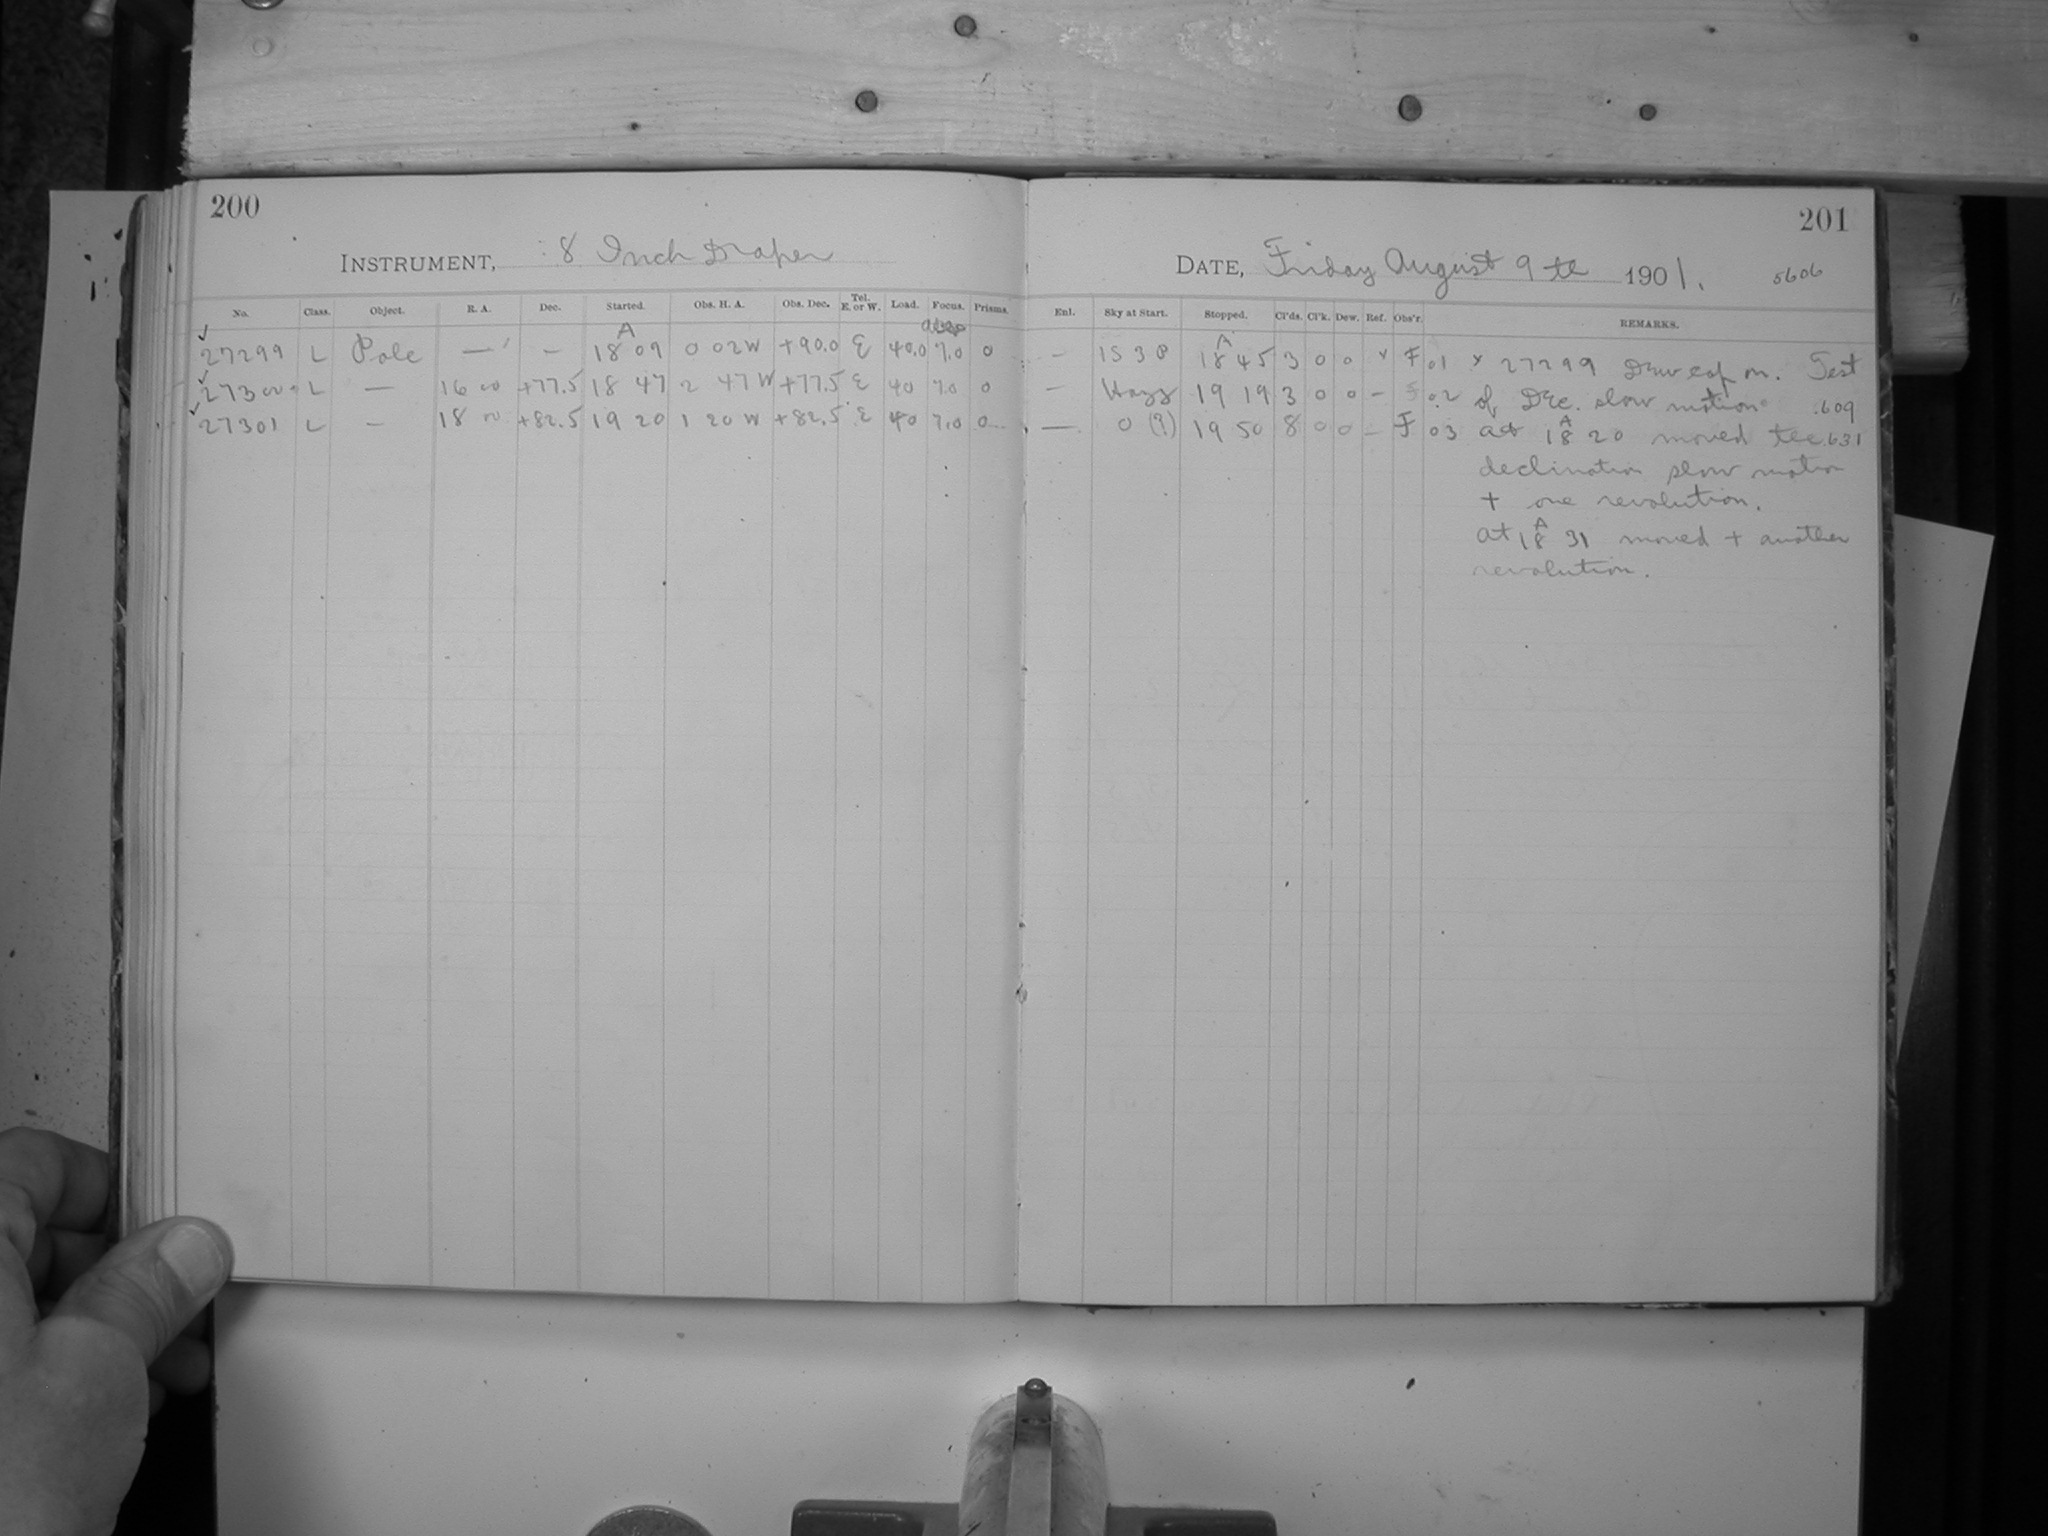 200
INSTRUMENT, 8 Inch Draper
No. Class. Object. R. A. Dec. Started. Obs. H. A. Obs. Dec. Tel. E. or W. Load. Focus. Prisms.
✓ 27299 L Pole — — A 18 09 0 02 W +90.0 E 40.0 7.0 0
✓ 27300 L — 16 00 +77.5 18 47 2 47 W +77.5 E 40 7.0 0
✓ 27301 L — 18 00 +82.5 19 20 1 20 W +82.5 E 40 7.0 0
201
DATE, Friday August 9 th 1901. 5606
Enl. Sky at Start. Stopped. Cl'ds. Cl'k. Dew. Ref. Obs'r. REMARKS.
— 1S 3P A 18 45 3 0 0 × F 01 × 27299 Dew cap on. Test
— Hazy 19 19 3 0 0 – F 02 of Dec. slow motion .609
— 0 (?) 19 50 8 0 0 – F 03 at A 18 20 moved tel .631
declination slow motion
+ one revolution.
at A 18 31 moved + another
revolution.